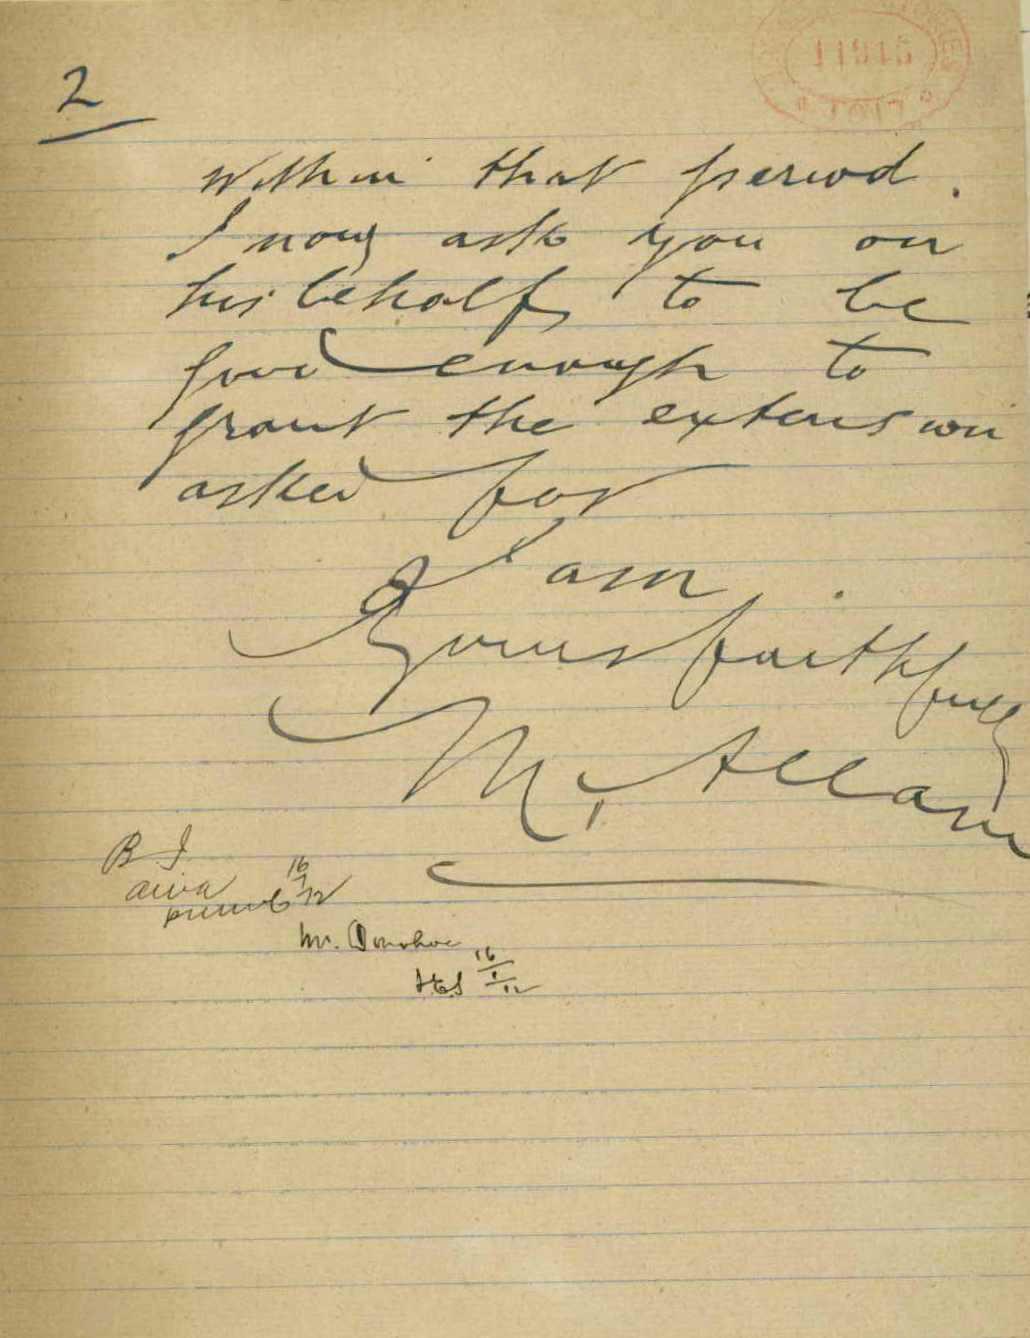 2
within that period.
I now ask you on
his behalf, to be
good enough to
grant the extension
asked for
I am
Yours faithfully
M. Allam
B I
16/1/12
Mr. Donohoe
16/1/12